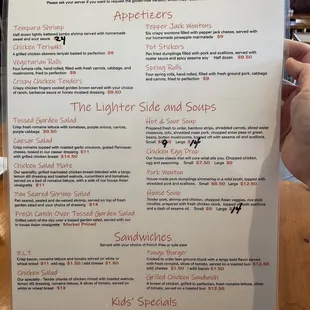 Please ask your server if you want to request the gluten free version
Appetizers
Tempura Shrimp
Half dozen lightly battered jumbo shrimp served with homemade
sweet and sour sauce
Chicken Teriyaki
4 grilled chicken skewers teriyaki basted to perfection $9
Vegetarian Rolls
Four lumpia rolls, hand rolled, filled with fresh carrots, cabbage, and
mushrooms, fried to perfection $9
Crispy Chicken Tenders
Crispy chicken fingers cooked golden brown served with your choice
of ranch, barbecue sauce or honey mustard dressing $9.50
Pepper Jack Wontons
Six crispy wontons filled with pepper jack cheese, served with
our homemade pineapple marmalade $9
Pot Stickers
Pan fried dumplings filled with pork and scallions, served with
oyster sauce and spicy sesame soy Half dozen $9.50
Spring Rolls
Four spring rolls, hand rolled, filled with fresh ground pork, cabbage
and carrots, fried to perfection $9
The Lighter Side and Soups
Tossed Garden Salad
Crisp fresh romaine lettuce with tomatoes, purple onions, carrots,
purple cabbage $9.50
Caesar Salad
Crisp romaine topped with roasted garlic croutons, grated Parmesan
cheese, tossed in our caesar dressing $11
with grilled chicken breast $14.50
Chicken Salad Plate
Our specialty, grilled marinated chicken breast blended with a tangy
lemon aioli dressing and toasted walnuts, cucumbers and tomatoes,
served on a bed of romaine lettuce, with a side of our house Asian
vinaigrette $11
Pan Seared Shrimp Salad
Pan seared, peeled and de-veined shrimp, served on top of fresh
garden salad and your choice of dressing $14
Fresh Catch Over Tossed Garden Salad
Grilled catch of the day over a tossed garden salad, served with our
house Asian vinaigrette Market Priced
Hot & Sour Soup
Prepared fresh to order, bamboo strips, shredded carrots, sliced water
chestnuts, tofu, shredded roast pork, chopped snow peas or green
beans, button mushrooms, topped off with sesame oil and scallions
Small $9 Large 14
Chicken Egg Drop
Our house classic that will cure what ails you. Chopped chicken,
egg and seasoning. Small $7.50 Large $9
Pork Wonton
House made pork dumplings simmering in a mild broth, topped with
shredded pork and scallions. Small $6.50 Large $12.50
House Soup
Tender pork, shrimp and chicken, chopped Asian veggies, rice stick
noodles, prepared with fresh chicken stock, topped with scallions
and a dash of sesame oil. Small $9 Large 14
Sandwiches
Served with your choice of french fries or cole slaw
B.L.T.
Crisp bacon, romaine lettuce and tomato served on white or
wheat bread $11 add egg $1.50 | add cheese $1.50
Chicken Salad
Our specialty - Tender chunks of chicken mixed with toasted walnuts,
lemon dill dressing, romaine lettuce, & slices of tomato, served on
white or wheat bread $12
Pango Burger
Cooked to order lean ground chuck with a tangy bold flavor served
with fresh romaine, slices of tomato, served on a toasted bun $13.50
add cheese $1.50 | add bacon $1.50
Grilled Chicken Sandwich
A breast of chicken, grilled to perfection, fresh romaine lettuce, slices
of tomato, served on a toasted bun $13.50
Kids' Specials